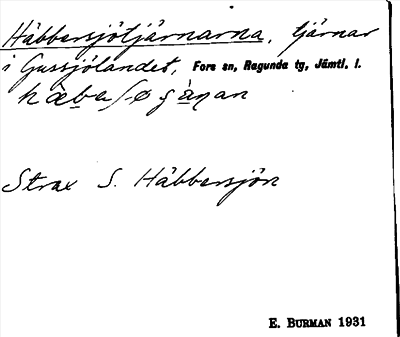 Häbbersjötjärnarna, tjärnar
i Gussjölandet, Fors sn, Ragunda tg, Jämtl. l.
Strax S. Häbbersjön
E. BURMAN 1931